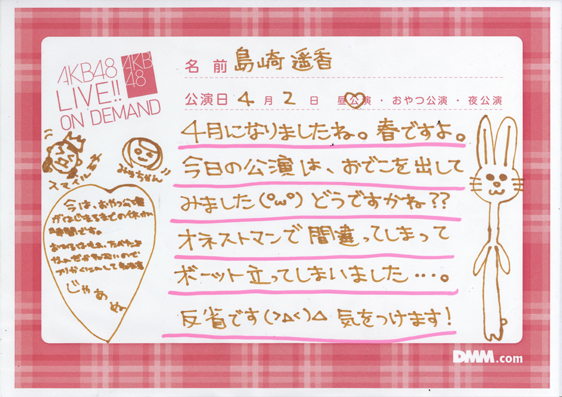 AKB48
LIVE!!
ON DEMAND
AKB
48
名前 島崎遥香
公演日 4月2日 昼公演・おやつ公演・夜公演
4月になりましたね。春ですよ。
今日の公演は、おでこを出して
みました(°ω°)どうですかね??
オネストマンで間違ってしまって
ボーット立ってしまいました…。
反省です(>△<)△ 気をつけます!
スマイル
みおちゃん
今は、おやつ公演
がはじまるまでの休み
時間です。
じゃぁね
DMM.com